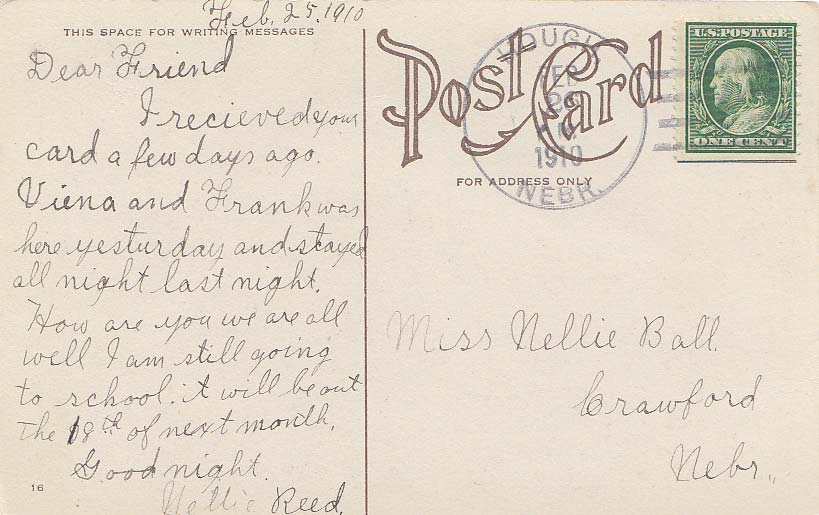 Feb. 25, 1910
THIS SPACE FOR WRITING MESSAGES
Dear Friend
I recieved your
card a few days ago.
Viena and Frank was
here yesturday and stayed
all night last night.
How are you we are all
well I am still going
to school. it will be out
the 18th of next month.
Good night.
Nellie Reed.
16
Post Card
FOR ADDRESS ONLY
HOUGH
FEB
1910
NEBR.
U.S. POSTAGE
ONE CENT
Miss Nellie Ball.
Crawford
Nebr.,